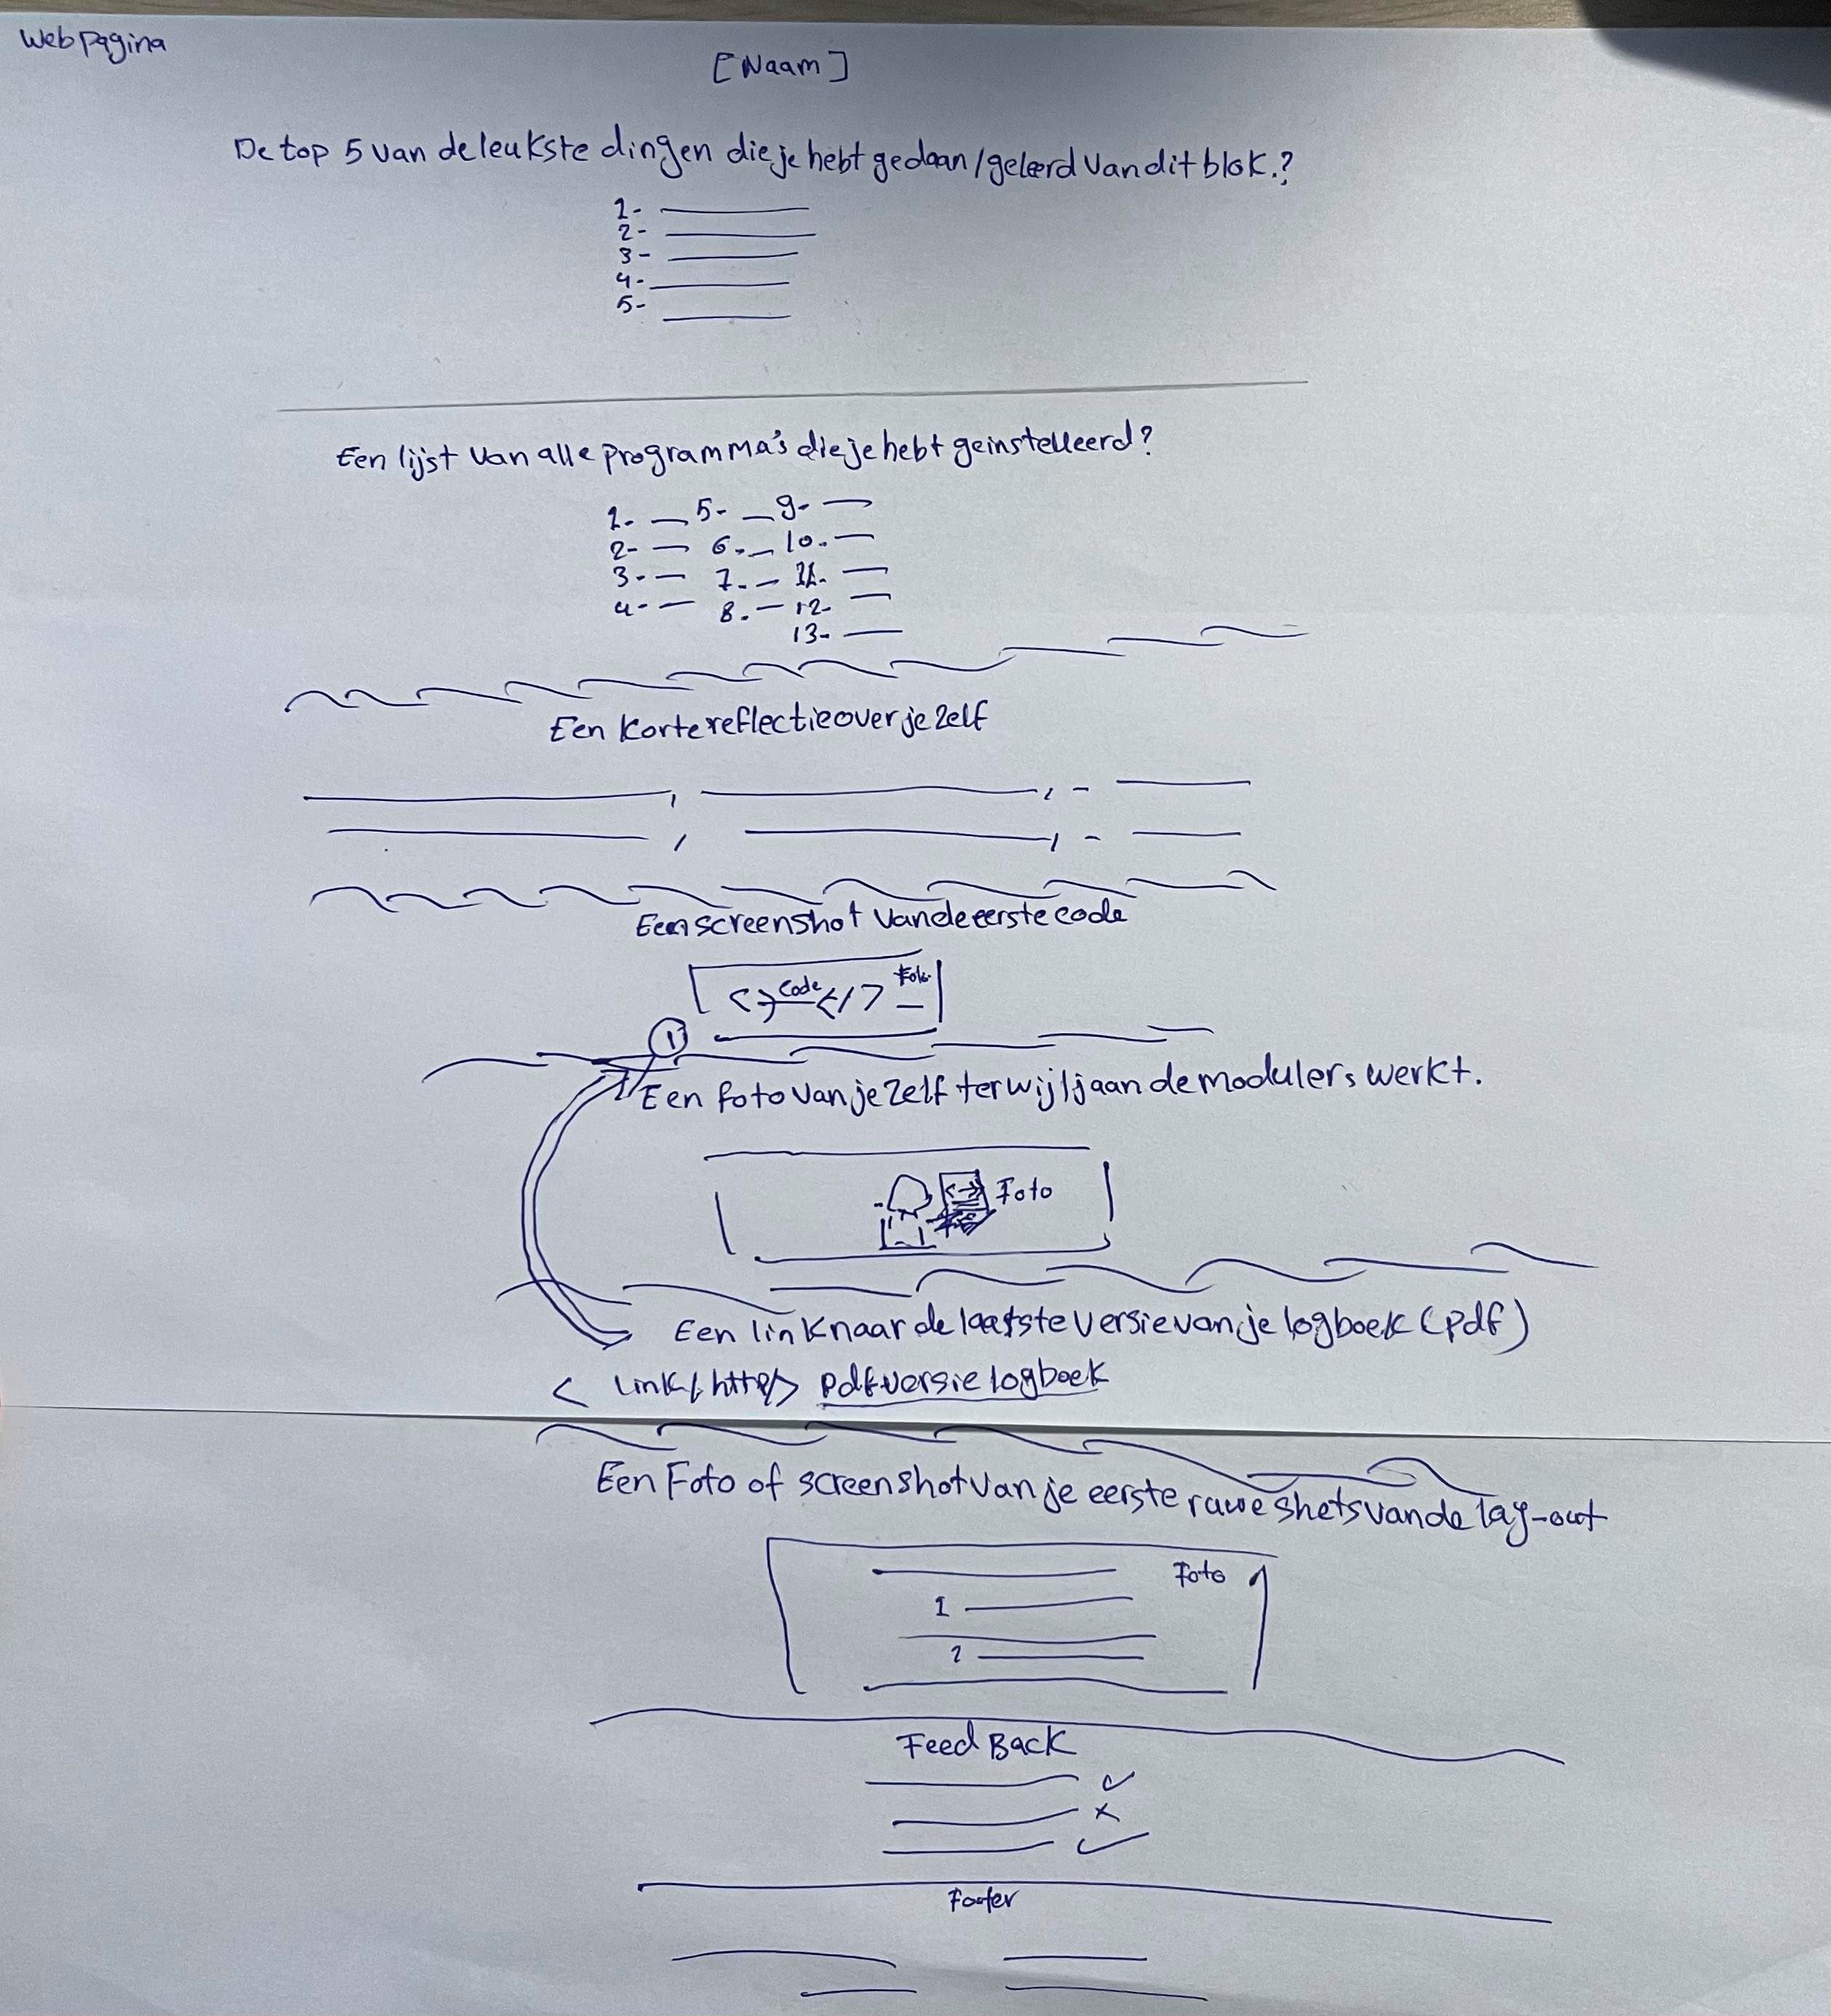 Webpagina
[Naam]
De top 5 van de leukste dingen die je hebt gedaan/geleerd van dit blok.?
1-
2-
3-
4-
5-
Een lijst van alle programma's die je hebt geinstelleerd?
1. 5- 9-
2- 6. 10.
3. 7. 11.
4- 8. 12-
13-
Een korte reflectie over je zelf
Een screenshot van de eerste code
<> Code </> Foto
1
Een foto van je zelf terwijl j aan de modulers werkt.
<> Foto
Een link naar de laatste versie van je logboek (pdf)
< link/http/> pdf versie logboek
Een Foto of screenshot van je eerste rauwe shets van de lay-out
Foto
1
2
FeedBack
Footer